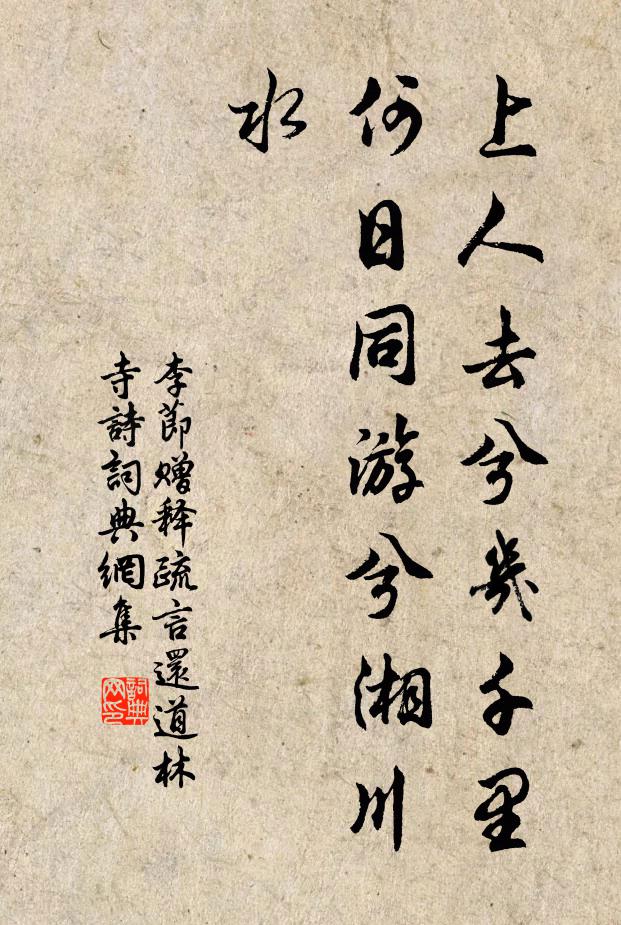 上人去兮幾千里
何日同游兮湘川
水
李節贈释疏言還道林
寺詩詞典網集
詞典
网印